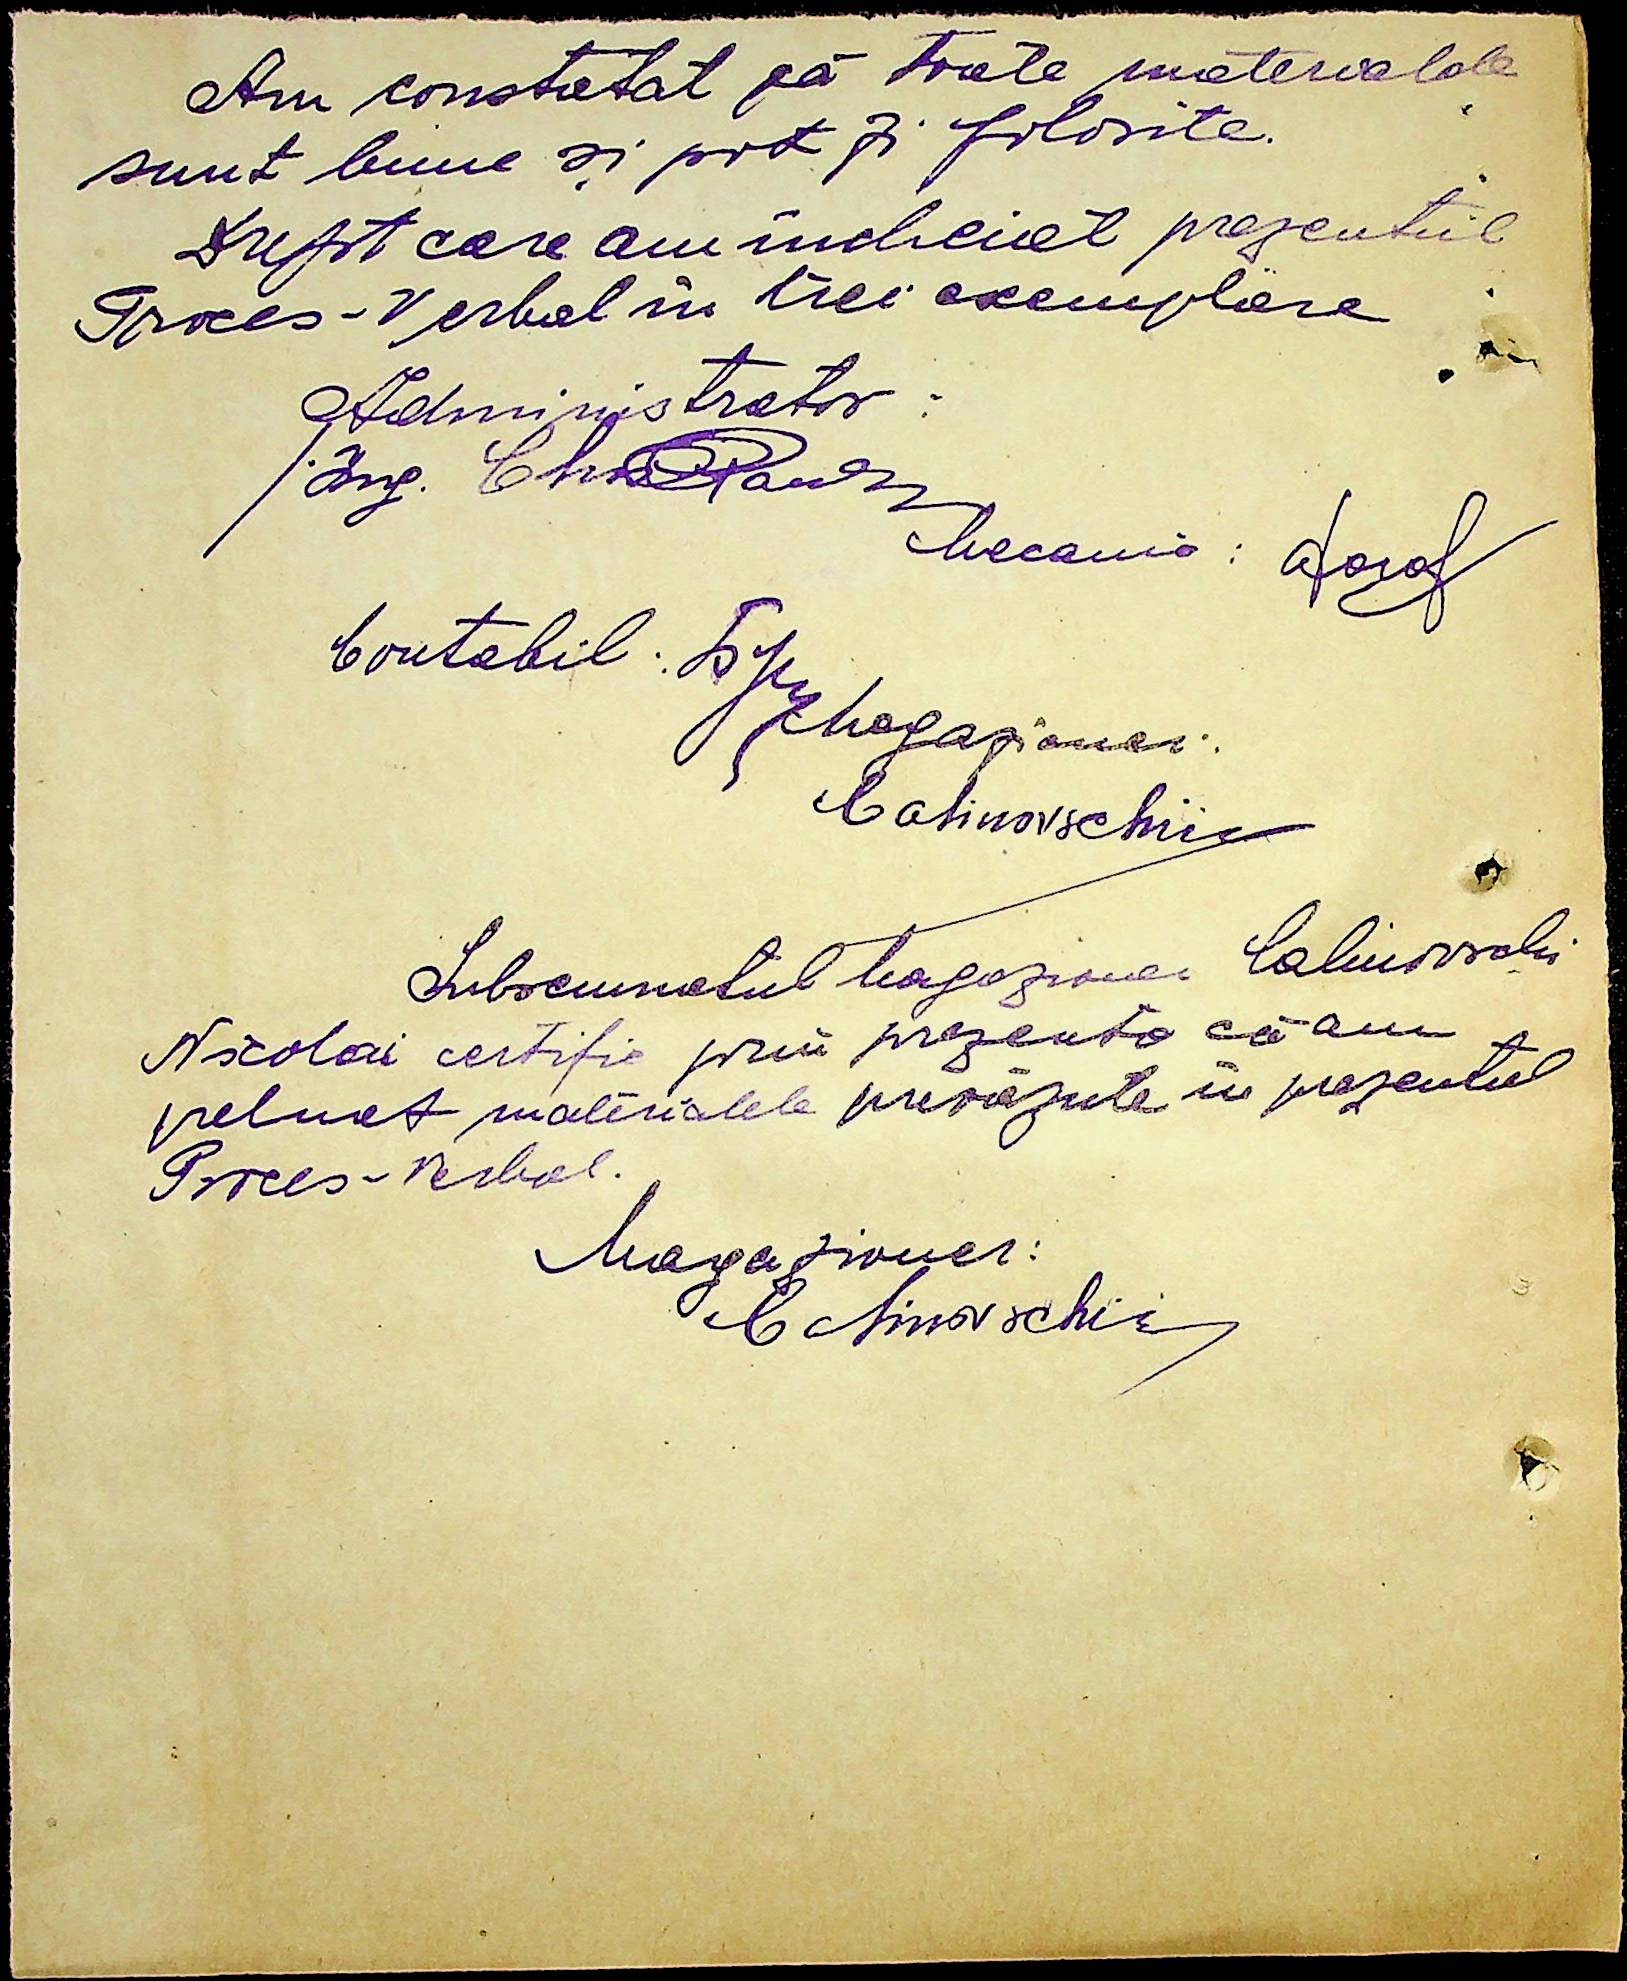 Am constatat că toate materialele
sunt bune și pot fi folosite.
Drept care am încheiat prezentul
Proces-Verbal în trei exemplare
Administrator:
Ing.
Mecanic: Iosof
Contabil:
Magazioner:
Calinovschii
Subsemnatul Magazioner Calinovschi
Nicolai certific prin prezenta că am
preluat materialele prevăzute în prezentul
Proces-Verbal.
Magazioner:
Calinovschii